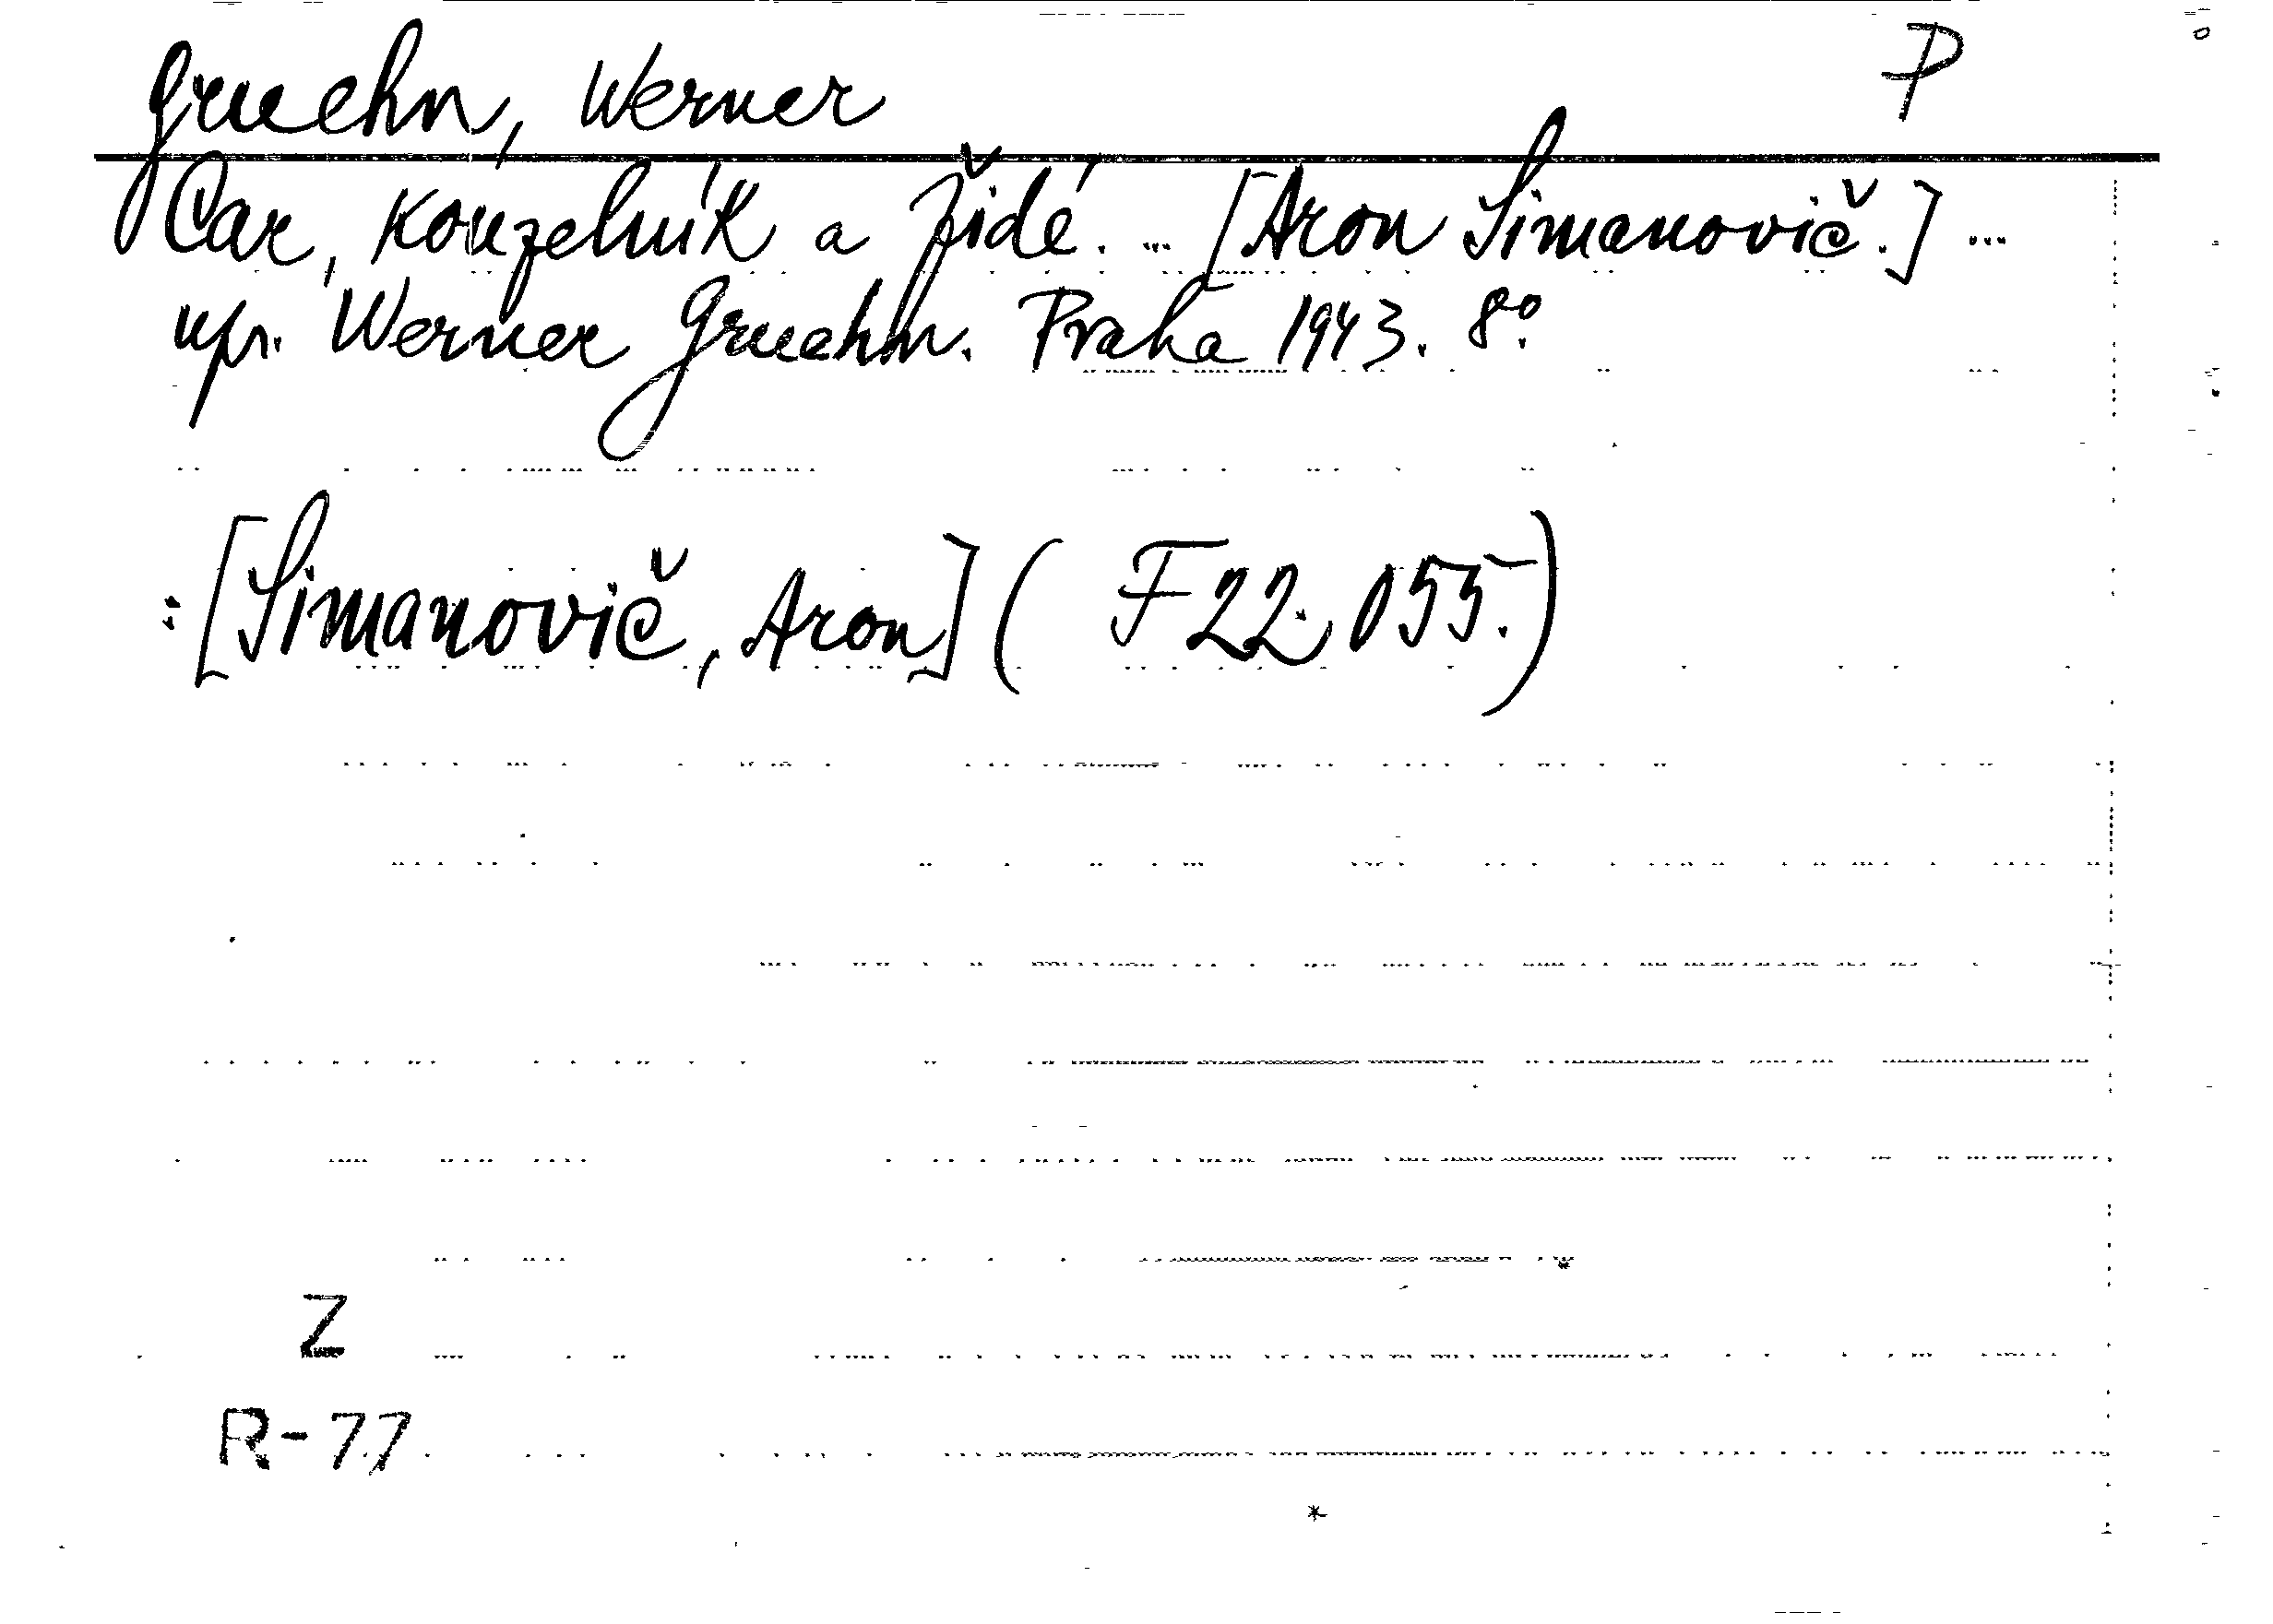 Gruehn, Werner P
Car, kouzelník a židé. ... [Aron Simanovič.] ...
upr. Werner Gruehn. Praha 1943. 8°.
: [Simanovič, Aron] ( F 22.055.)
Z
R-77